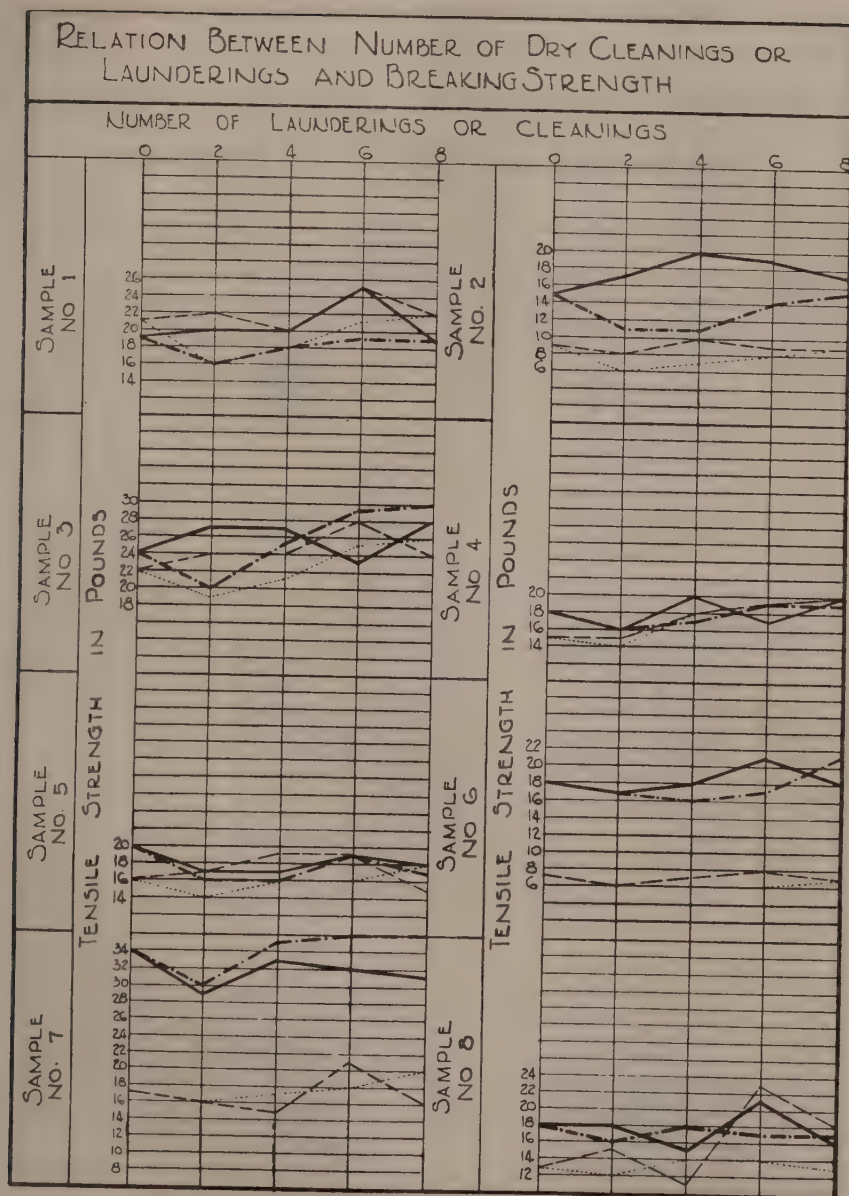 RELATION BETWEEN NUMBER OF DRY CLEANINGS OR
LAUNDERINGS AND BREAKING STRENGTH
NUMBER OF LAUNDERINGS OR CLEANINGS
0 2 4 6 8
0 2 4 6 8
TENSILE STRENGTH IN POUNDS
SAMPLE
NO 1
26
24
22
20
18
16
14
SAMPLE
NO 3
30
28
26
24
22
20
18
SAMPLE
NO. 5
20
18
16
14
SAMPLE
NO. 7
34
32
30
28
26
24
22
20
18
16
14
12
10
8
TENSILE STRENGTH IN POUNDS
SAMPLE
NO. 2
20
18
16
14
12
10
8
6
SAMPLE
NO 4
20
18
16
14
SAMPLE
NO. 6
22
20
18
16
14
12
10
8
6
SAMPLE
NO 8
24
22
20
18
16
14
12